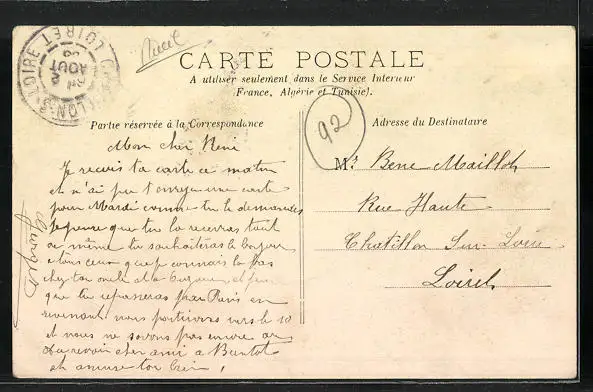 Rueil
CARTE POSTALE
A utiliser seulement dans le Service Interieur
(France, Algérie et Tunisie).
CHATILLON-S-LOIRE LOIRET
AOUT
Partie réservée à la Correspondance
Adresse du Destinataire
92
Mon cher René
Je reçois ta carte ce matin
et n'ai pu t'envoyer une carte
pour Mardi comme tu le demandes
Je pense que tu la recevras tout
de même tu souhaiteras le bonjour
à tous ceux que je connais là bas
chez ton oncle
que tu repasseras par Paris en
revenant nous partirons vers le 10
et nous ne savons pas encore où
Au revoir cher ami à Bientôt
et amuse toi bien !
Georges
Mr. Rene Maillot
Rue Haute
Chatillon Sur Loire
Loiret